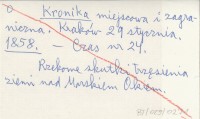 O Kronika miejscowa i zagra-
niczna. Kraków 29 stycznia.
1858. — Czas nr 24.
Rzekome skutki trzęsienia
ziemi nad Morskiem Okiem.